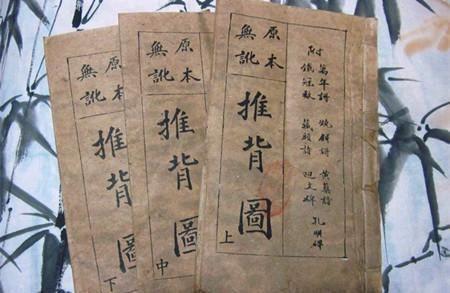 附
萬年謌 燒餅謌 黃蘗詩 孔明碑
鐵冠數 藏頭詩
原本
無訛
推背圖
上
原本
無訛
推背圖
中
原本
無訛
推背圖
下